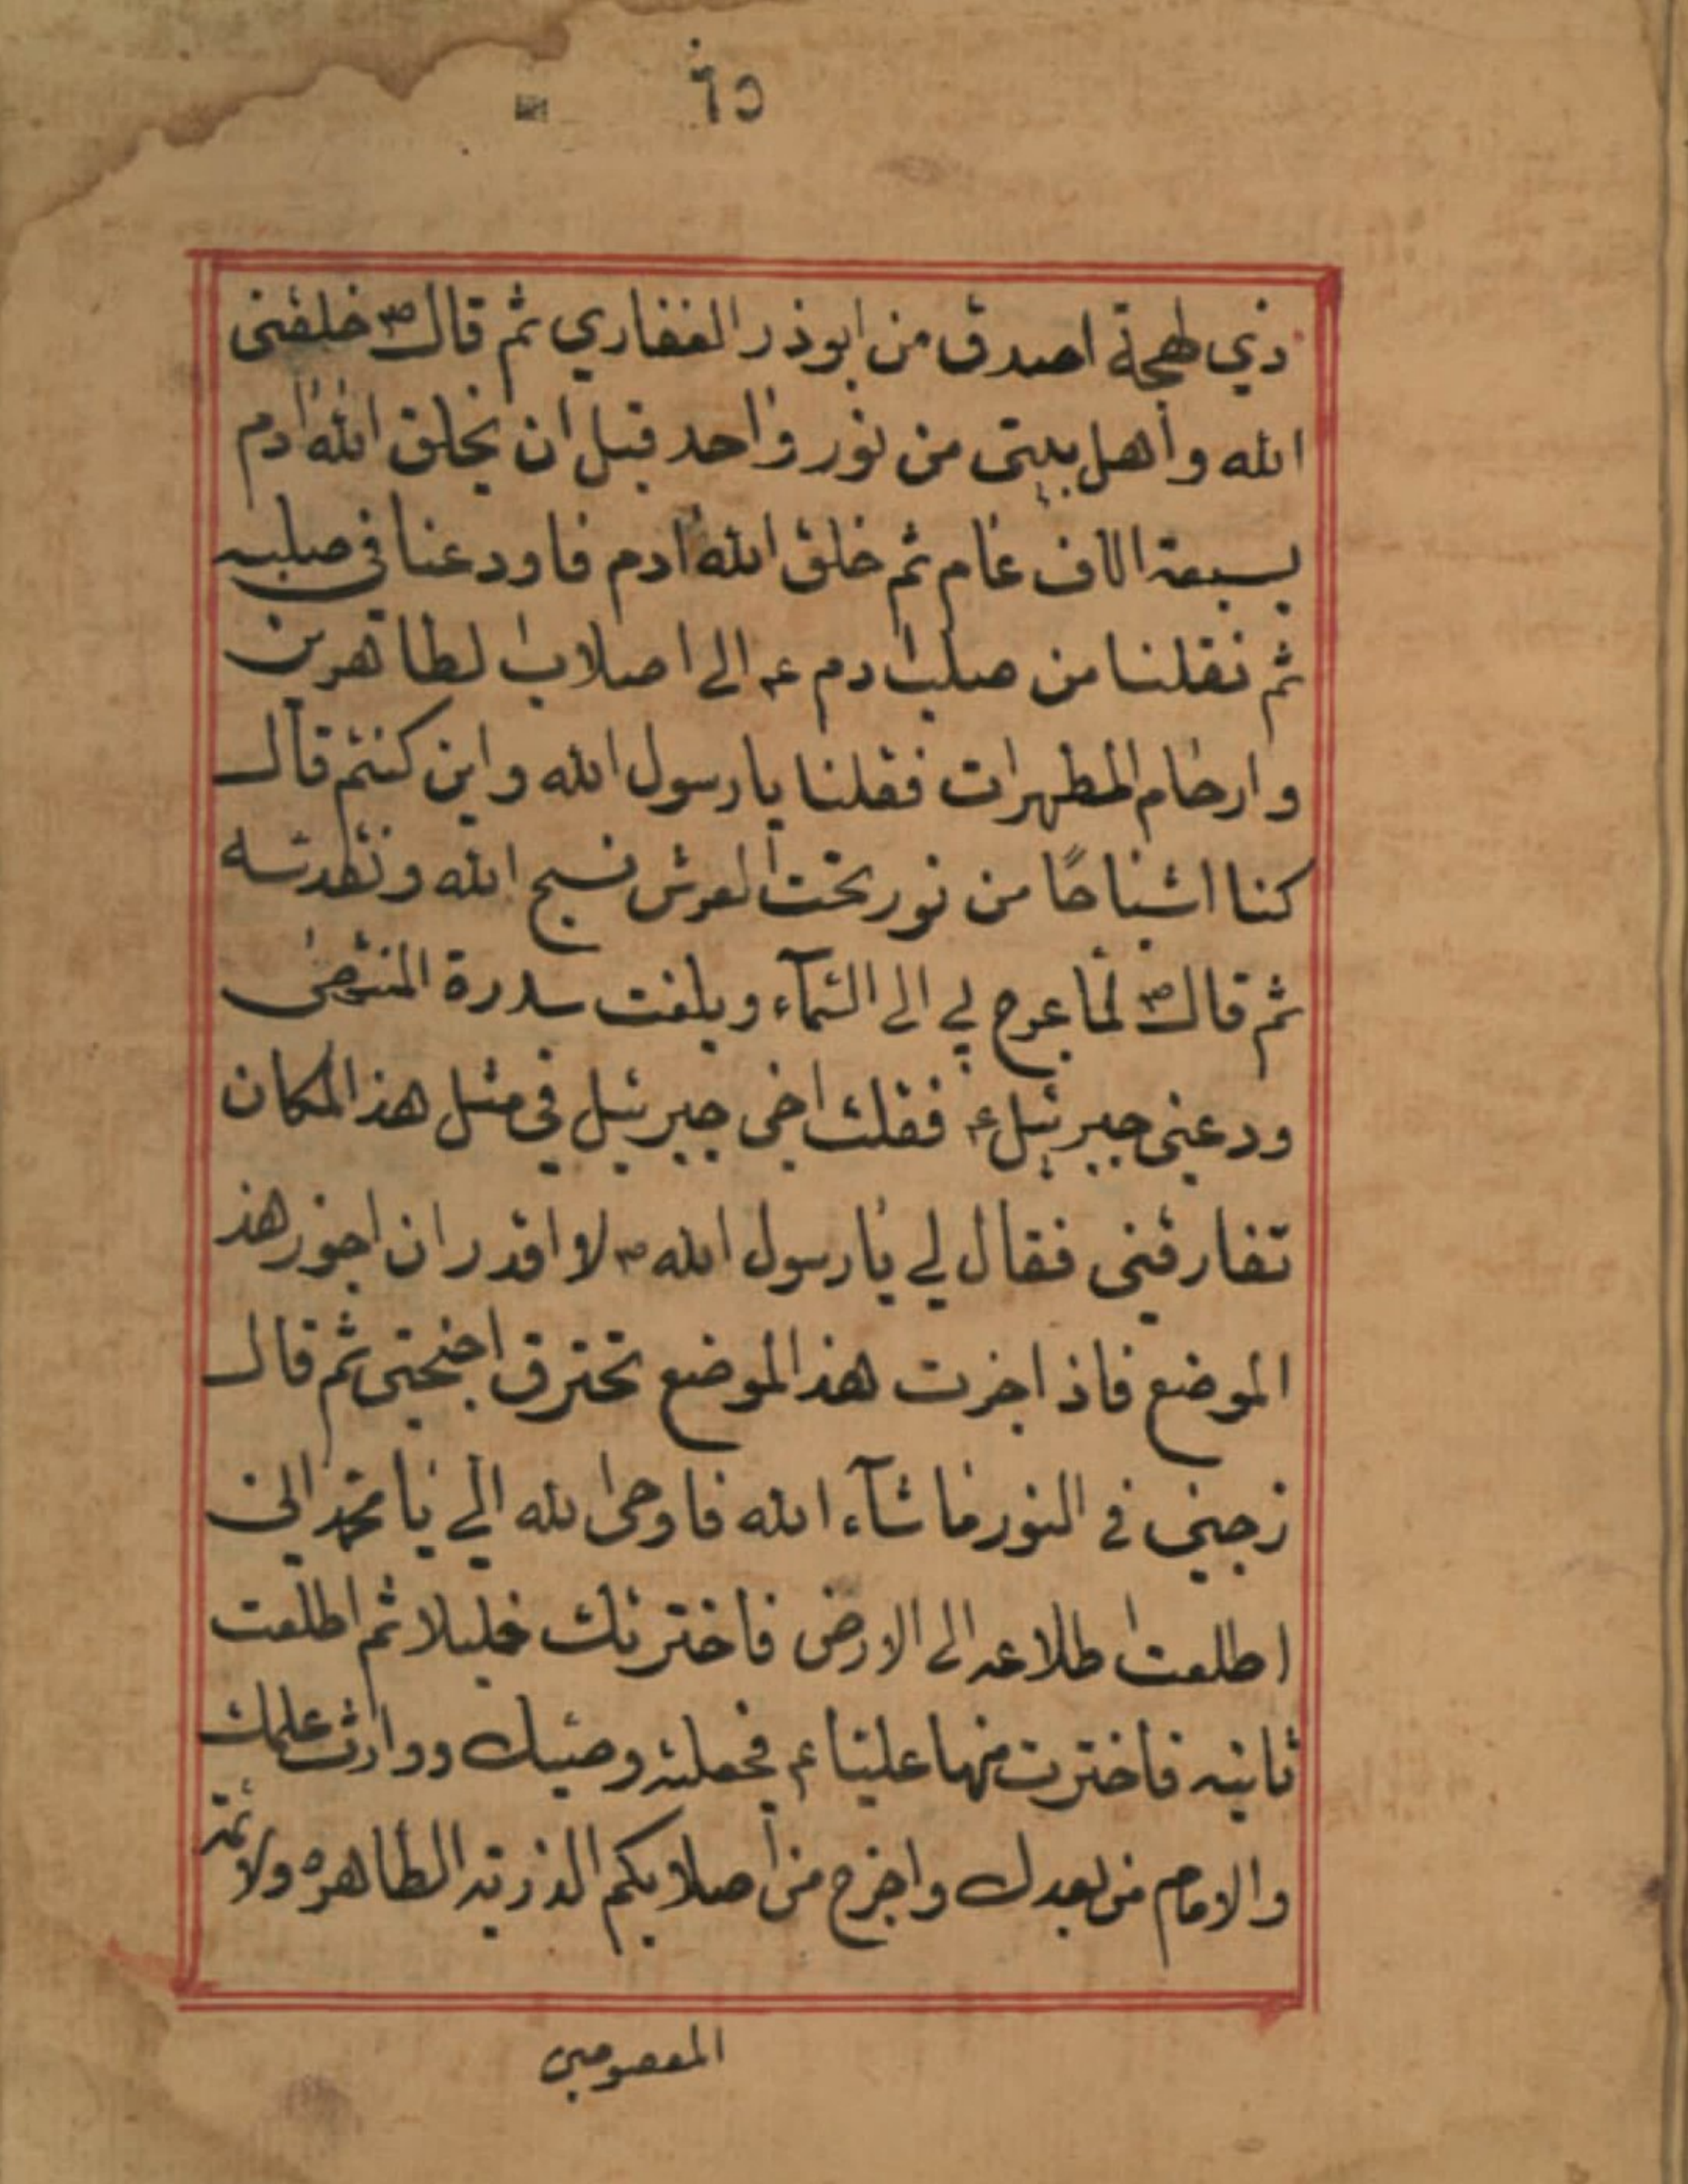 ذي لهجة اصدق من ابوذر الغفاري ثم قال ص خلقني
الله واهل بيتي من نور واحد قبل ان يخلق الله ادم
بسبعة الاف عام ثم خلق الله ادم فاودعنا في صلبه
ثم نقلنا من صلب ادم ع الى اصلاب الطاهرين
وارحام المطهرات فقلنا يا رسول الله واين كنتم قال
كنا اشباحًا من نور تحت العرش نسبح الله ونقدسه
ثم قال ص لما عرج لي الى السمآء وبلغت سدرة المنتهى
ودعني جبرئيل ع فقلت اخي جبرئيل في مثل هذ المكان
تفارقني فقال لي يا رسول الله ص لا اقدر ان اجوز هذ
الموضع فاذ اجزت هذ الموضع تحترق اجنحتي ثم قال
زجني في النور ما شآء الله فاوحى الله الي يا محمد اني
اطلعت اطلاعه الى الارض فاخترتك خليلا ثم اطلعت
ثانيه فاخترت منها عليا ع فجعلته وصيك ووارث علمك
والامام من بعدك واخرج من اصلابكم الذريه الطاهره ولائمة
المعصومين